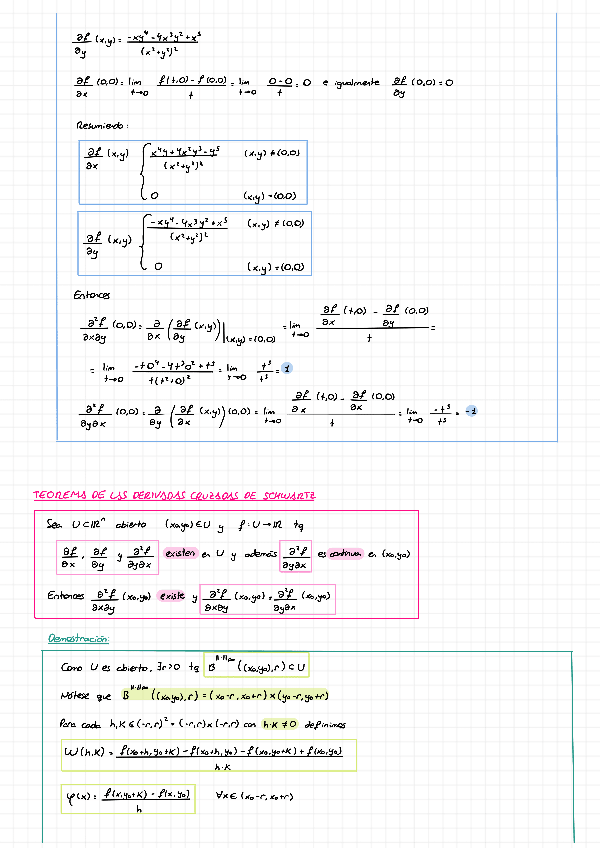 ∂f/∂y (x,y) = (-xy⁴ - 4x³y² + x⁵)/(x²+y²)²
∂f/∂x (0,0) = lim t→0 (f(t,0) - f(0,0))/t = lim t→0 (0-0)/t = 0 e igualmente ∂f/∂y (0,0) = 0
Resumiendo:
∂f/∂x (x,y) { (x⁴y + 4x²y³ - y⁵)/(x²+y²)² (x,y) ≠ (0,0)
0 (x,y) = (0,0)
∂f/∂y (x,y) { (-xy⁴ - 4x³y² + x⁵)/(x²+y²)² (x,y) ≠ (0,0)
0 (x,y) = (0,0)
Entonces
∂²f/∂x∂y (0,0) = ∂/∂x (∂f/∂y (x,y))|(x,y)=(0,0) = lim t→0 (∂f/∂x (t,0) - ∂f/∂y (0,0))/t =
= lim t→0 (-t0⁴ - 4t³0² + t⁵)/(t(t²+0)²) = lim t→0 t⁵/t⁵ = 1
∂²f/∂y∂x (0,0) = ∂/∂y (∂f/∂x (x,y))(0,0) = lim t→0 (∂f/∂x (t,0) - ∂f/∂x (0,0))/t = lim t→0 -t⁵/t⁵ = -1
TEOREMA DE LAS DERIVADAS CRUZADAS DE SCHWARTZ
Sea U⊂ℝⁿ abierto (x₀,y₀)∈U y f:U→ℝ tq
∂f/∂x, ∂f/∂y y ∂²f/∂y∂x existen en U y además ∂²f/∂y∂x es continua en (x₀,y₀)
Entonces ∂²f/∂x∂y (x₀,y₀) existe y ∂²f/∂x∂y (x₀,y₀) = ∂²f/∂y∂x (x₀,y₀)
Demostración:
Como U es abierto, ∃r>0 tq B^‖·‖∞ ((x₀,y₀),r) ⊂ U
Nótese que B^‖·‖∞ ((x₀,y₀),r) = (x₀-r, x₀+r) × (y₀-r, y₀+r)
Para cada h,k ∈ (-r,r)² = (-r,r)×(-r,r) con h·k ≠ 0 definimos
W(h,k) = (f(x₀+h, y₀+k) - f(x₀+h, y₀) - f(x₀, y₀+k) + f(x₀,y₀))/(h·k)
φ(x) = (f(x,y₀+k) - f(x,y₀))/h ∀x∈(x₀-r, x₀+r)